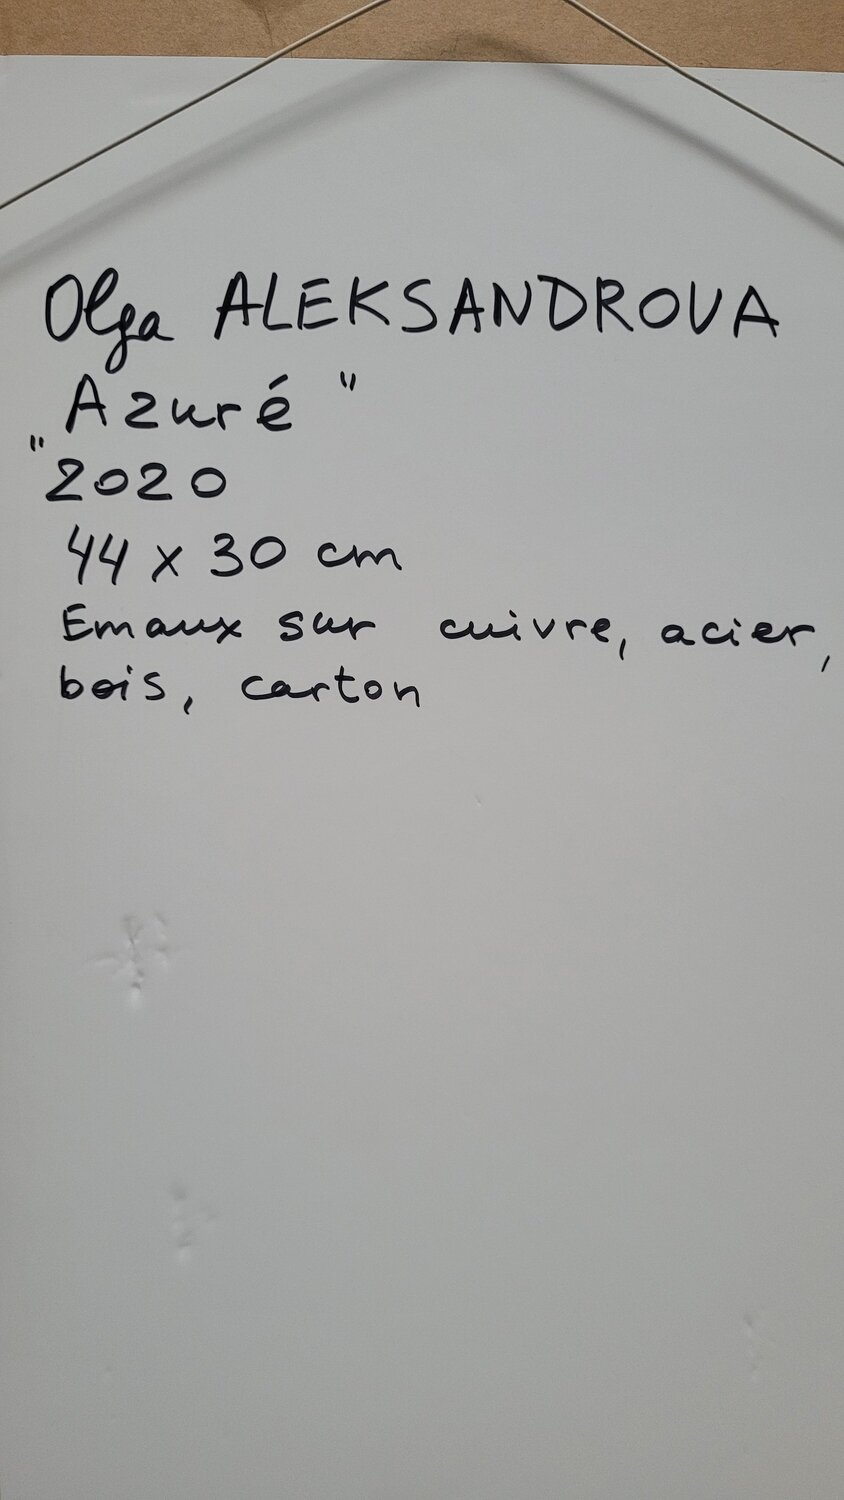 Olga ALEKSANDROVA
"Azuré"
2020
44 x 30 cm
Emaux sur cuivre, acier,
bois, carton